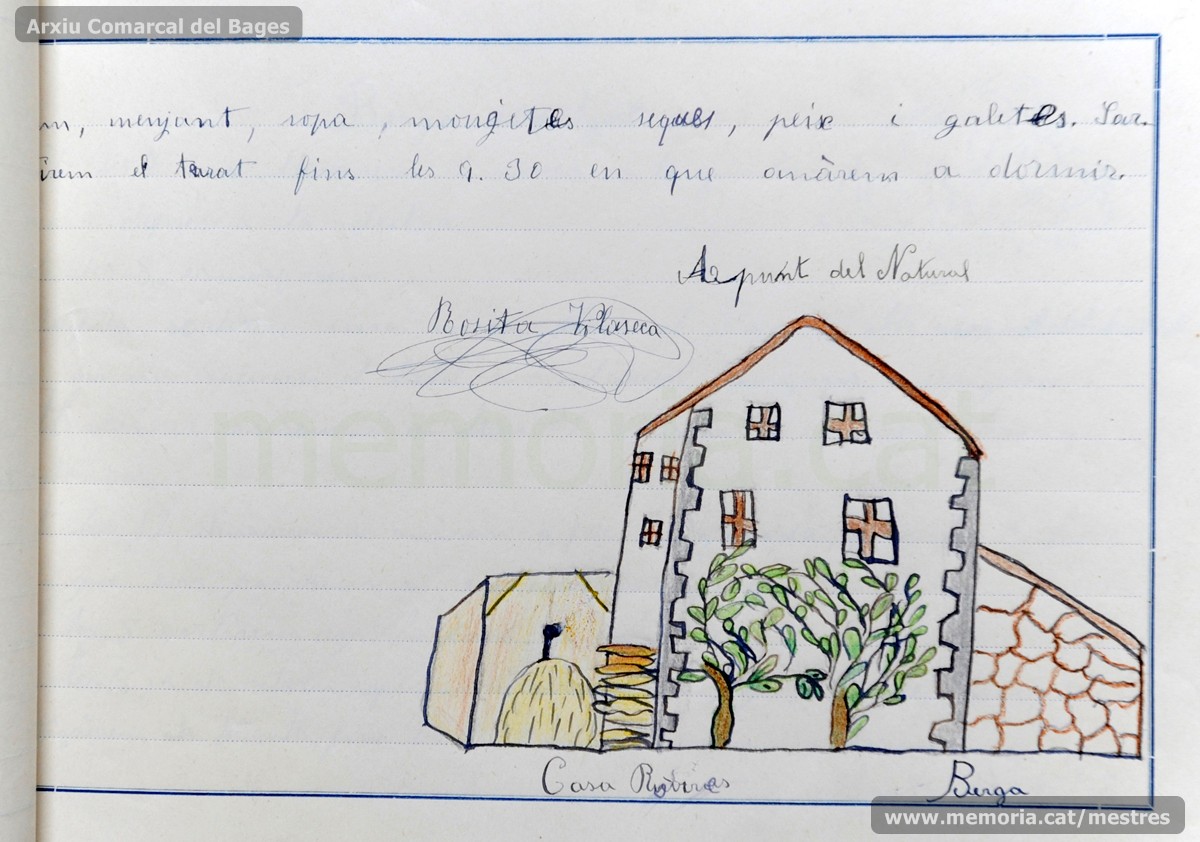 Arxiu Comarcal del Bages
m, menjant, sopa, mongetes seques, peix i galetes. Sor.
tirem el terat fins les 9.30 en que anàrem a dormir.
Apunt del Natural
Rosita Vilaseca
memoria.cat
Casa
Berga
www.memoria.cat/mestres